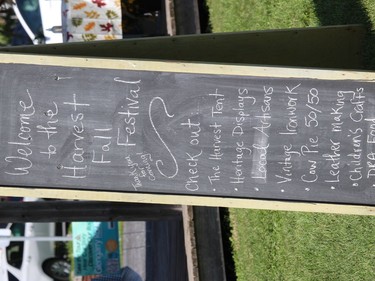 Welcome
to the
Harvest
Fall
Festival
Thank you
for
Check out
• The Harvest Tent
• Heritage Displays
• Local Artisans
• Vintage Ironwork
• Cow Pie 50/50
• Leather making
• Children's Crafts
Food